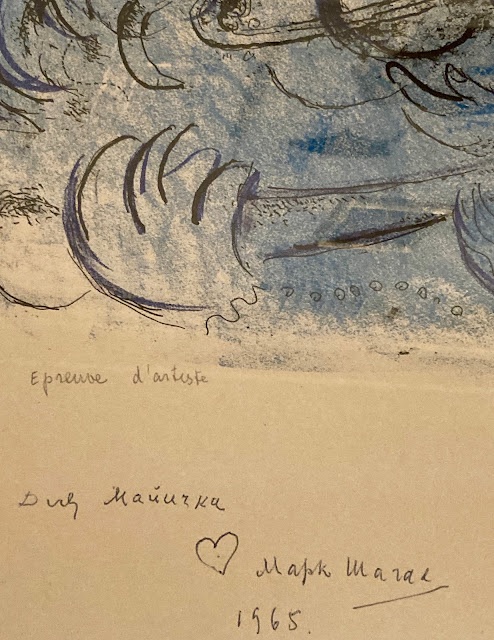 Epreuve d'artiste
Для Майичка
♡ Марк Шагал
1965.